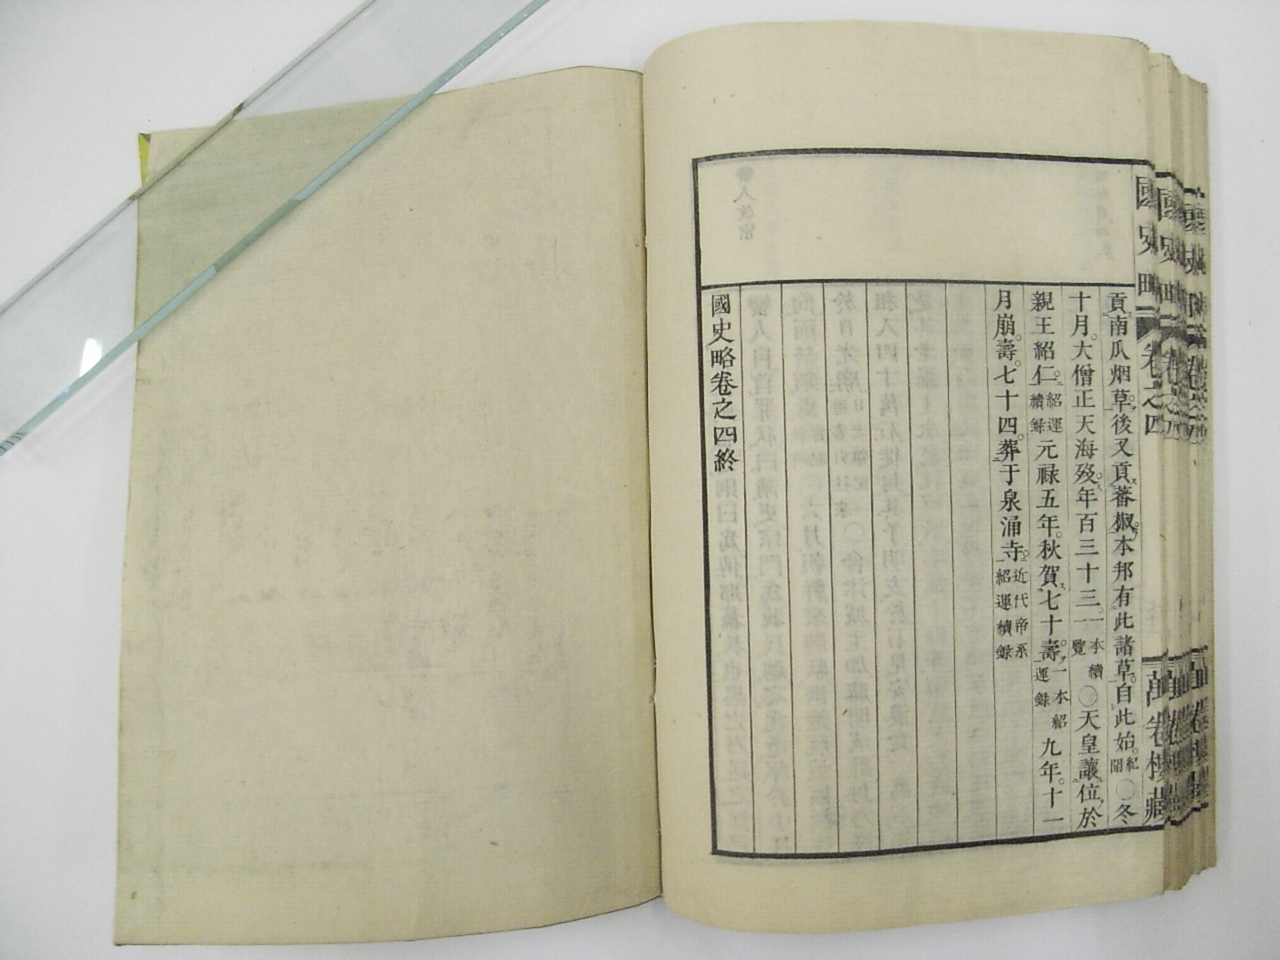 國史略 卷之四 萬卷樓藏
貢南瓜烟草後又貢蕃椒本邦有此諸草自此始紀聞〇冬
十月大僧正天海歿年百三十三一本續一覽〇天皇讓位於
親王紹仁紹運續錄元祿五年秋賀七十壽一本紹運錄九年十一
月崩壽七十四葬于泉涌寺近代帝系紹運續錄
國史略卷之四終